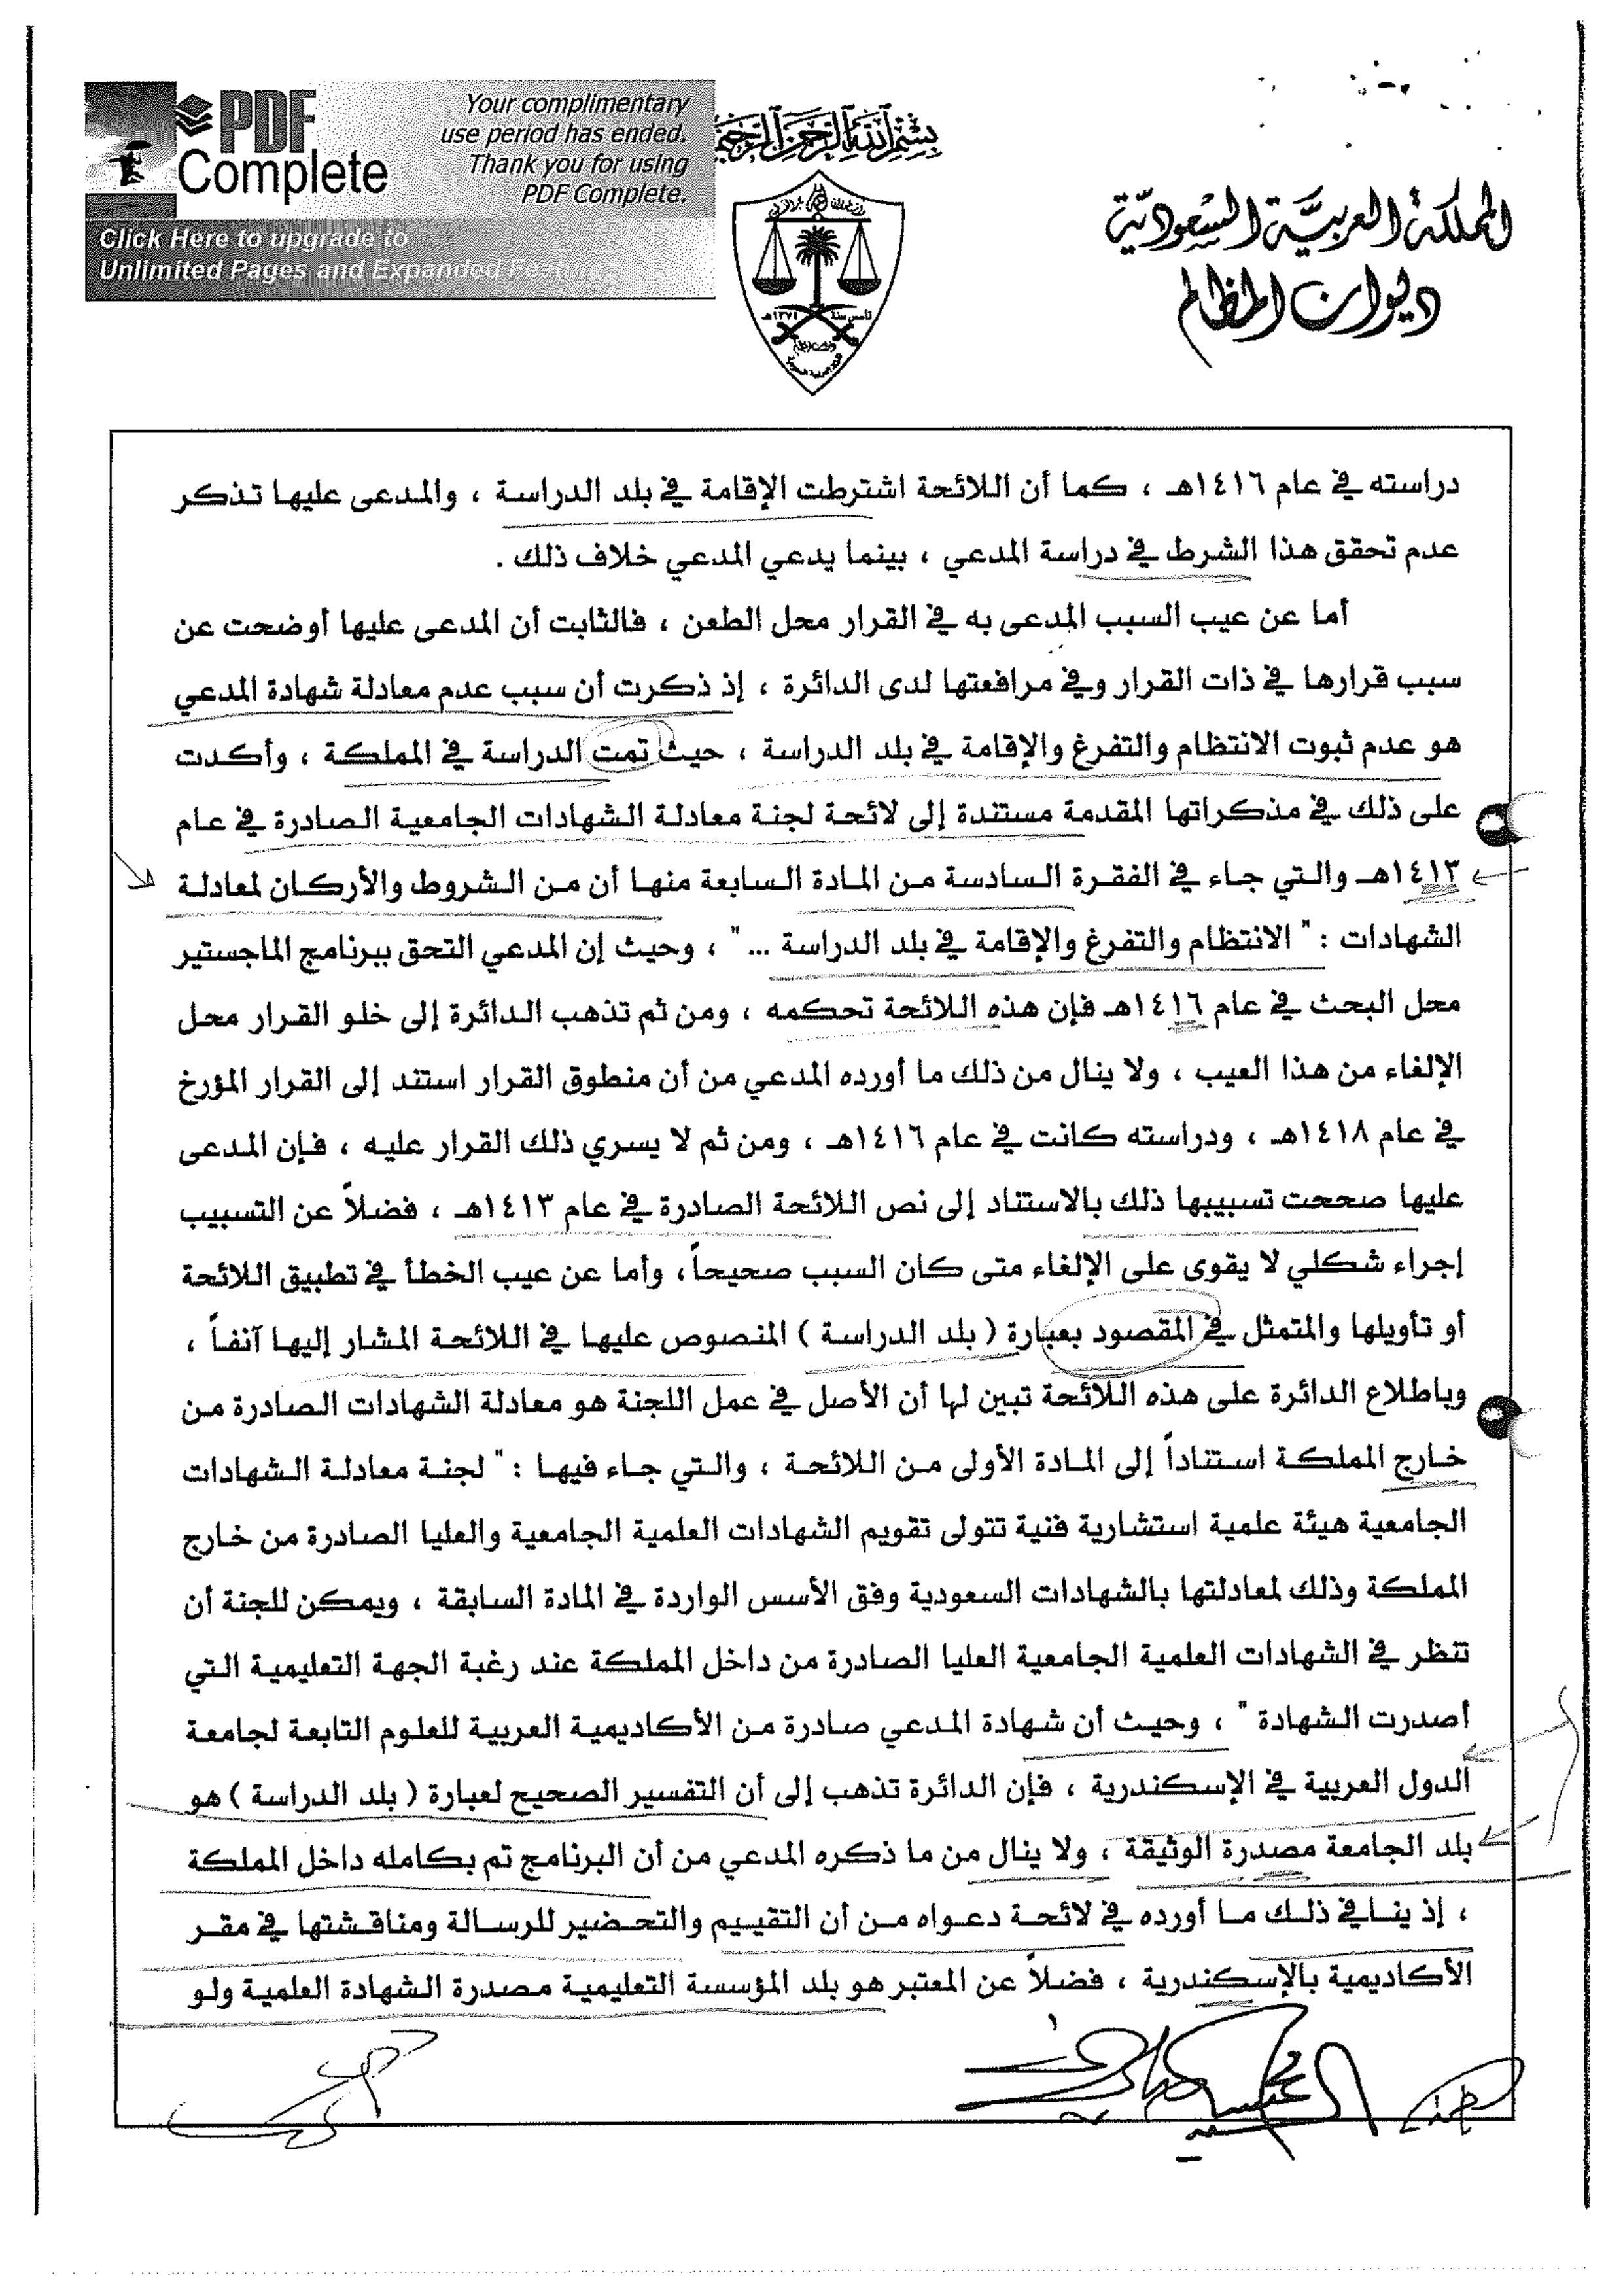 PDF Complete
Your complimentary
use period has ended.
Thank you for using
PDF Complete.
Click Here to upgrade to
Unlimited Pages and Expanded Features
بسم الله الرحمن الرحيم
المملكة العربية السعودية
ديوان المظالم
تأسس سنة ١٣٧٤هـ
دراسته في عام ١٤١٦هـ ، كما أن اللائحة اشترطت الإقامة في بلد الدراسة ، والمدعى عليها تذكر
عدم تحقق هذا الشرط في دراسة المدعي ، بينما يدعي المدعي خلاف ذلك .
أما عن عيب السبب المدعى به في القرار محل الطعن ، فالثابت أن المدعى عليها أوضحت عن
سبب قرارها في ذات القرار وفي مرافعتها لدى الدائرة ، إذ ذكرت أن سبب عدم معادلة شهادة المدعي
هو عدم ثبوت الانتظام والتفرغ والإقامة في بلد الدراسة ، حيث تمت الدراسة في المملكة ، وأكدت
على ذلك في مذكراتها المقدمة مستندة إلى لائحة لجنة معادلة الشهادات الجامعية الصادرة في عام
١٤١٣هـ والتي جاء في الفقرة السادسة من المادة السابعة منها أن من الشروط والأركان لمعادلة
الشهادات : " الانتظام والتفرغ والإقامة في بلد الدراسة ... " ، وحيث إن المدعي التحق ببرنامج الماجستير
محل البحث في عام ١٤١٦هـ فإن هذه اللائحة تحكمه ، ومن ثم تذهب الدائرة إلى خلو القرار محل
الإلغاء من هذا العيب ، ولا ينال من ذلك ما أورده المدعي من أن منطوق القرار استند إلى القرار المؤرخ
في عام ١٤١٨هـ ، ودراسته كانت في عام ١٤١٦هـ ، ومن ثم لا يسري ذلك القرار عليه ، فإن المدعى
عليها صححت تسبيبها ذلك بالاستناد إلى نص اللائحة الصادرة في عام ١٤١٣هـ ، فضلاً عن التسبيب
إجراء شكلي لا يقوى على الإلغاء متى كان السبب صحيحاً، وأما عن عيب الخطأ في تطبيق اللائحة
أو تأويلها والمتمثل في المقصود بعبارة ( بلد الدراسة ) المنصوص عليها في اللائحة المشار إليها آنفاً ،
وباطلاع الدائرة على هذه اللائحة تبين لها أن الأصل في عمل اللجنة هو معادلة الشهادات الصادرة من
خارج المملكة استناداً إلى المادة الأولى من اللائحة ، والتي جاء فيها : " لجنة معادلة الشهادات
الجامعية هيئة علمية استشارية فنية تتولى تقويم الشهادات العلمية الجامعية والعليا الصادرة من خارج
المملكة وذلك لمعادلتها بالشهادات السعودية وفق الأسس الواردة في المادة السابقة ، ويمكن للجنة أن
تنظر في الشهادات العلمية الجامعية العليا الصادرة من داخل المملكة عند رغبة الجهة التعليمية التي
أصدرت الشهادة " ، وحيث أن شهادة المدعي صادرة من الأكاديمية العربية للعلوم التابعة لجامعة
الدول العربية في الإسكندرية ، فإن الدائرة تذهب إلى أن التفسير الصحيح لعبارة ( بلد الدراسة ) هو
بلد الجامعة مصدرة الوثيقة ، ولا ينال من ما ذكره المدعي من أن البرنامج تم بكامله داخل المملكة
، إذ ينافي ذلك ما أورده في لائحة دعواه من أن التقييم والتحضير للرسالة ومناقشتها في مقر
الأكاديمية بالإسكندرية ، فضلاً عن المعتبر هو بلد المؤسسة التعليمية مصدرة الشهادة العلمية ولو